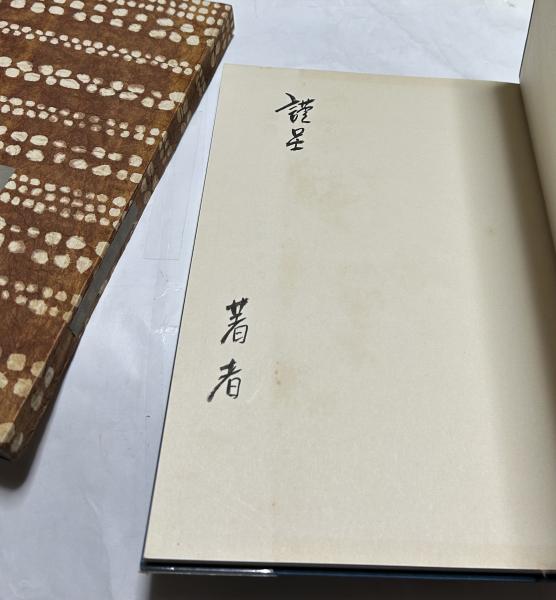 謹呈
著者